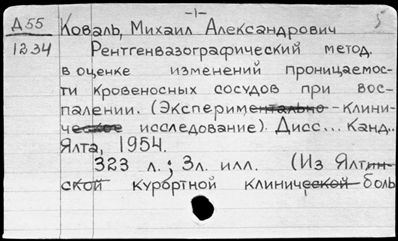 -1-
5
А55 Коваль, Михаил Александрович
1234 Рентгенвазографический метод.
в оценке изменений проницаемос-
ти кровеносных сосудов при вос-
палении. (Экспериментально-клини-
ческое исследование). Дисс... Канд..
Ялта, 1954.
323 л.; 3л. илл. (Из Ялтин-
ской курортной клинической боль